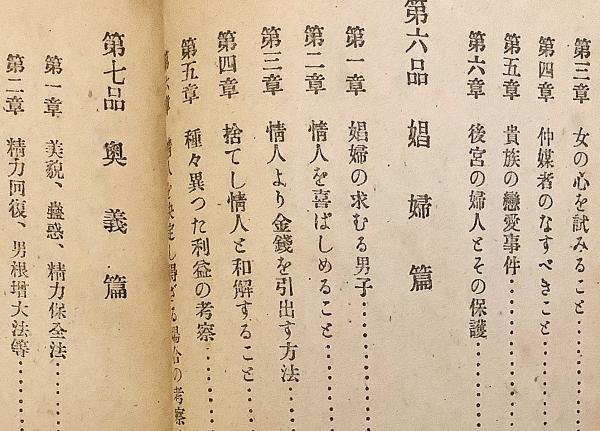 第三章 女の心を試みること……………
第四章 仲媒者のなすべきこと…………
第五章 貴族の戀愛事件……………
第六章 後宮の婦人とその保護…………
第六品 娼婦篇
第一章 娼婦の求むる男子……………
第二章 情人を喜ばしめること…………
第三章 情人より金錢を引出す方法……
第四章 捨てし情人と和解すること……
第五章 種々異つた利益の考察…………
場合の考察
第七品 奧義篇
第一章 美貌、蠱惑、精力保全法………
第二章 精力回復、男根增大法等………